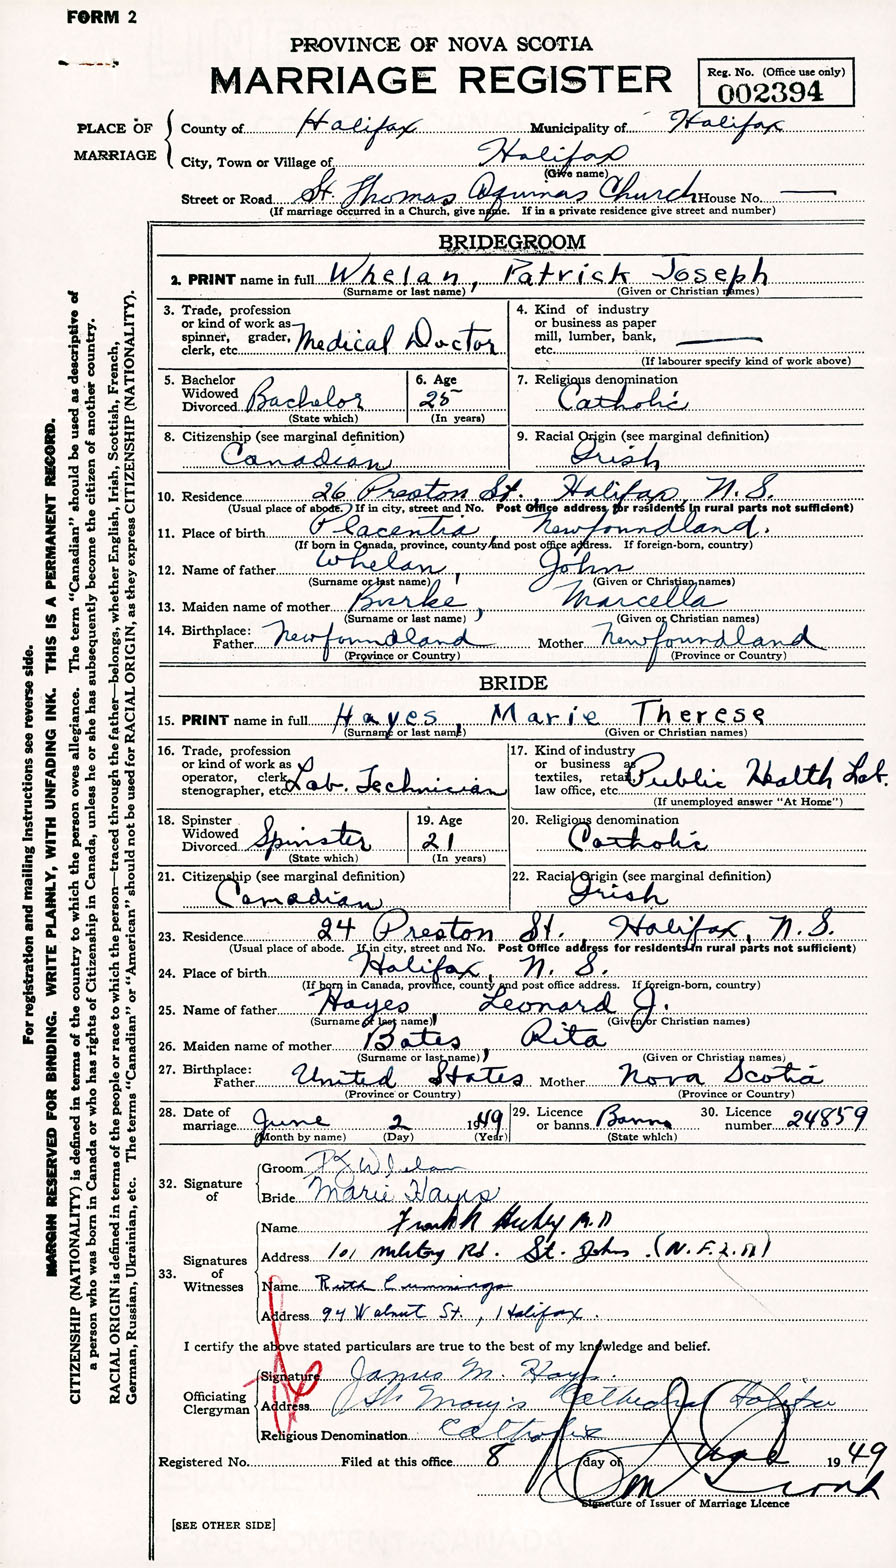 FORM 2
PROVINCE OF NOVA SCOTIA
MARRIAGE REGISTER
Reg. No. (Office use only)
002394
PLACE OF MARRIAGE
County of Halifax Municipality of Halifax
City, Town or Village of Halifax
(Give name)
Street or Road St. Thomas Aquinas Church House No. —
(If marriage occurred in a Church, give name. If in a private residence give street and number)
BRIDEGROOM
2. PRINT name in full Whelan, Patrick Joseph
(Surname or last name) (Given or Christian names)
3. Trade, profession or kind of work as spinner, grader, clerk, etc. Medical Doctor
4. Kind of industry or business as paper mill, lumber, bank, etc. —
(If labourer specify kind of work above)
5. Bachelor Widowed Divorced Bachelor
(State which)
6. Age 25
(In years)
7. Religious denomination Catholic
8. Citizenship (see marginal definition) Canadian
9. Racial Origin (see marginal definition) Irish
10. Residence 26 Preston St. Halifax, N.S.
(Usual place of abode. If in city, street and No. Post Office address for residents in rural parts not sufficient)
11. Place of birth Placentia, Newfoundland.
(If born in Canada, province, county and post office address. If foreign-born, country)
12. Name of father Whelan, John
(Surname or last name) (Given or Christian names)
13. Maiden name of mother Burke, Marcella
(Surname or last name) (Given or Christian names)
14. Birthplace: Father Newfoundland Mother Newfoundland
(Province or Country) (Province or Country)
BRIDE
15. PRINT name in full Hayes, Marie Therese
(Surname or last name) (Given or Christian names)
16. Trade, profession or kind of work as operator, clerk, stenographer, etc. Lab. Technician
17. Kind of industry or business as textiles, retail, law office, etc. Public Health Lab.
(If unemployed answer "At Home")
18. Spinster Widowed Divorced Spinster
(State which)
19. Age 21
(In years)
20. Religious denomination Catholic
21. Citizenship (see marginal definition) Canadian
22. Racial Origin (see marginal definition) Irish
23. Residence 24 Preston St. Halifax, N.S.
(Usual place of abode. If in city, street and No. Post Office address for residents in rural parts not sufficient)
24. Place of birth Halifax, N.S.
(If born in Canada, province, county and post office address. If foreign-born, country)
25. Name of father Hayes, Leonard J.
(Surname or last name) (Given or Christian names)
26. Maiden name of mother Bates, Rita
(Surname or last name) (Given or Christian names)
27. Birthplace: Father United States Mother Nova Scotia
(Province or Country) (Province or Country)
28. Date of marriage June 2 1949
(Month by name) (Day) (Year)
29. Licence or banns Banns
(State which)
30. Licence number 24859
32. Signature of
Groom P J Whelan
Bride Marie Hayes
33. Signatures of Witnesses
Name Frank M.D
Address 101 Military Rd. St. Johns. (N.F.L.D)
Name Ruth Cummings
Address 94 Walnut St., Halifax.
I certify the above stated particulars are true to the best of my knowledge and belief.
Officiating Clergyman
Signature James M. Hayes.
Address St. Mary's Cathedral Halifax
Religious Denomination Catholic
Registered No. Filed at this office 8 day of June 1949
Signature of Issuer of Marriage Licence
[SEE OTHER SIDE]
For registration and mailing instructions see reverse side.
MARGIN RESERVED FOR BINDING. WRITE PLAINLY, WITH UNFADING INK. THIS IS A PERMANENT RECORD.
CITIZENSHIP (NATIONALITY) is defined in terms of the country to which the person owes allegiance. The term "Canadian" should be used as descriptive of
a person who was born in Canada or who has rights of Citizenship in Canada, unless he or she has subsequently become the citizen of another country.
RACIAL ORIGIN is defined in terms of the people or race to which the person—traced through the father—belongs, whether English, Irish, Scottish, French,
German, Russian, Ukrainian, etc. The terms "Canadian" or "American" should not be used for RACIAL ORIGIN, as they express CITIZENSHIP (NATIONALITY).